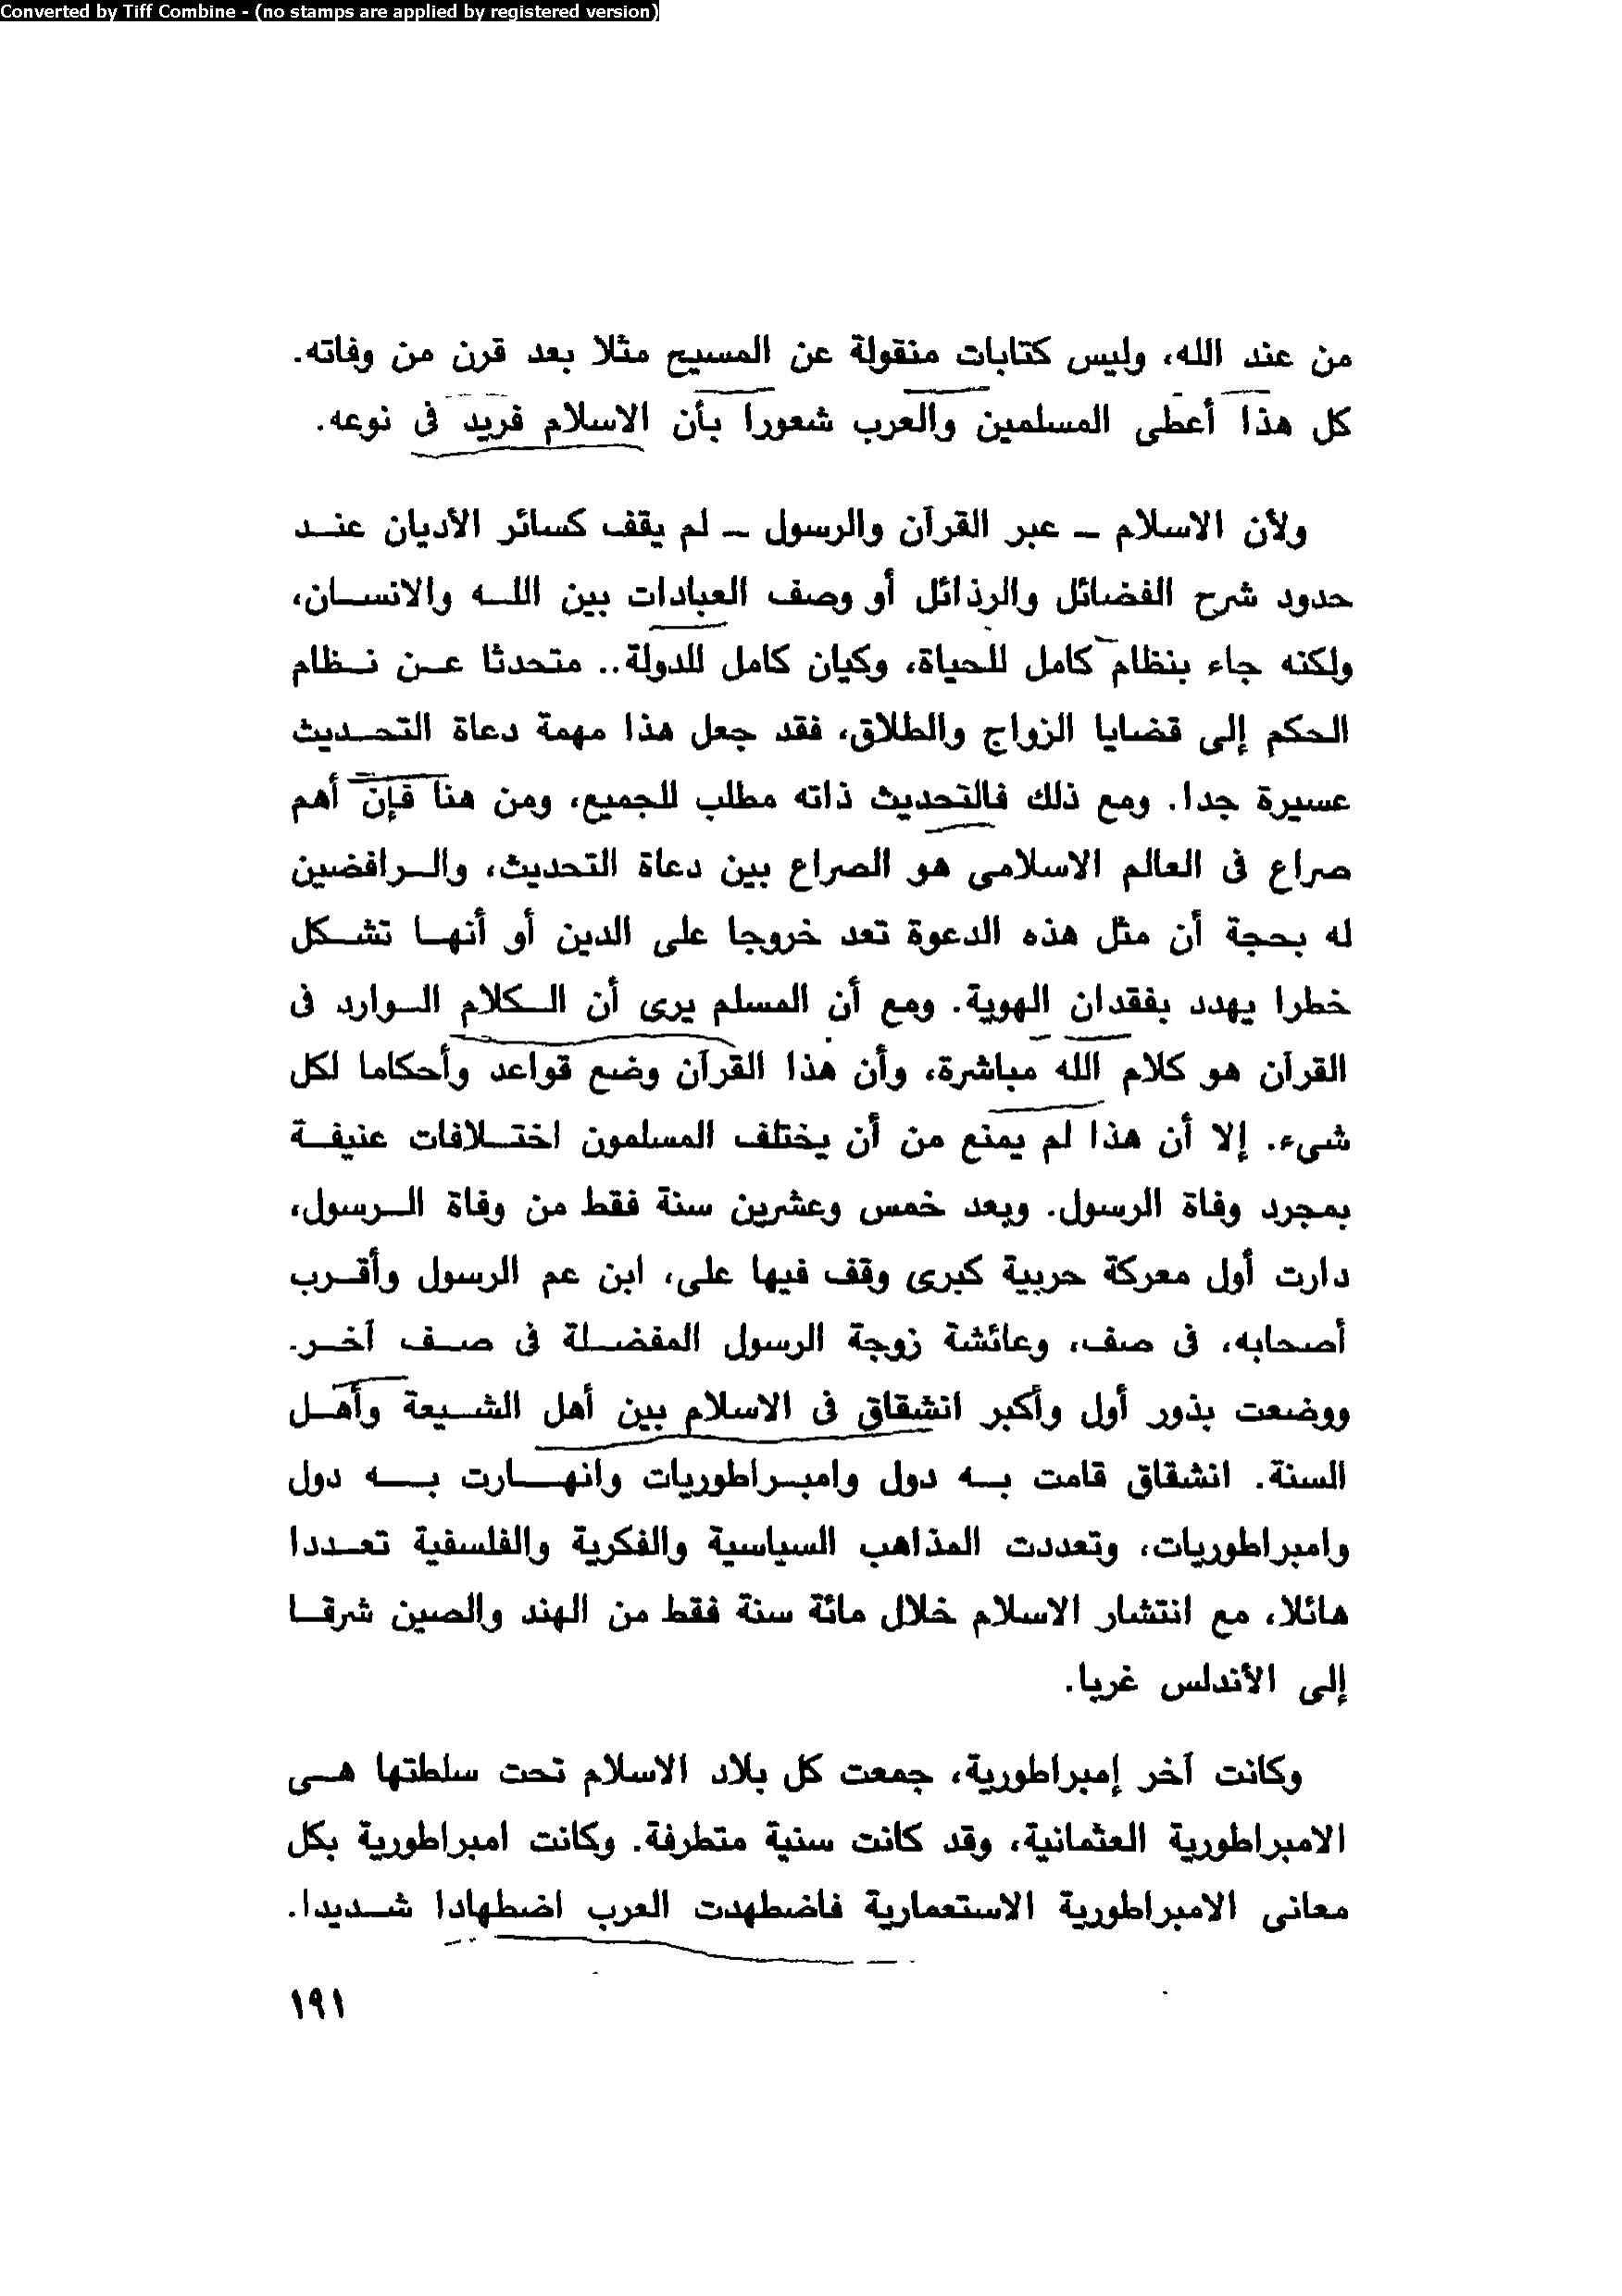 Converted by Tiff Combine - (no stamps are applied by registered version)
من عند الله، وليس كتابات منقولة عن المسيح مثلا بعد قرن من وفاته.
كل هذا أعطى المسلمين والعرب شعورا بأن الاسلام فريد فى نوعه.
ولأن الاسلام ــ عبر القرآن والرسول ــ لم يقف كسائر الأديان عنــد
حدود شرح الفضائل والرذائل أو وصف العبادات بين اللــه والانســان،
ولكنه جاء بنظام كامل للحياة، وكيان كامل للدولة.. متحدثا عــن نــظام
الحكم إلى قضايا الزواج والطلاق، فقد جعل هذا مهمة دعاة التحــديث
عسيرة جدا. ومع ذلك فالتحديث ذاته مطلب للجميع، ومن هنا فإن أهم
صراع فى العالم الاسلامى هو الصراع بين دعاة التحديث، والــرافضين
له بحجة أن مثل هذه الدعوة تعد خروجا على الدين أو أنهــا تشــكل
خطرا يهدد بفقدان الهوية. ومع أن المسلم يرى أن الــكلام الــوارد فى
القرآن هو كلام الله مباشرة، وأن هذا القرآن وضع قواعد وأحكاما لكل
شىء. إلا أن هذا لم يمنع من أن يختلف المسلمون اختــلافات عنيفــة
بمجرد وفاة الرسول. وبعد خمس وعشرين سنة فقط من وفاة الــرسول،
دارت أول معركة حربية كبرى وقف فيها على، ابن عم الرسول وأقــرب
أصحابه، فى صف، وعائشة زوجة الرسول المفضــلة فى صــف آخــر.
ووضعت بذور أول وأكبر انشقاق فى الاسلام بين أهل الشــيعة وأهــل
السنة. انشقاق قامت بــه دول وامبــراطوريات وانهــارت بــه دول
وامبراطوريات، وتعددت المذاهب السياسية والفكرية والفلسفية تعــددا
هائلا، مع انتشار الاسلام خلال مائة سنة فقط من الهند والصين شرقــا
إلى الأندلس غربا.
وكانت آخر إمبراطورية، جمعت كل بلاد الاسلام تحت سلطتها هــى
الامبراطورية العثمانية، وقد كانت سنية متطرفة. وكانت امبراطورية بكل
معانى الامبراطورية الاستعمارية فاضطهدت العرب اضطهادا شــديدا.
١٩١